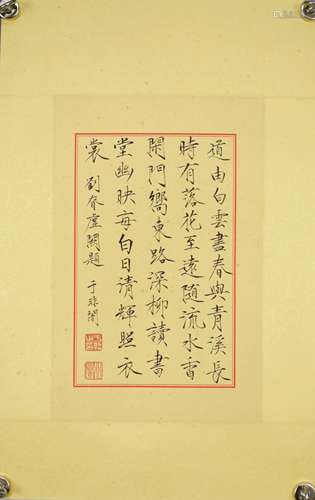 道由白雲盡春與青溪長
時有落花至遠隨流水香
閑門嚮東路深柳讀書
堂幽映每白日清輝照衣
裳 劉眘虛闕題 于非闇